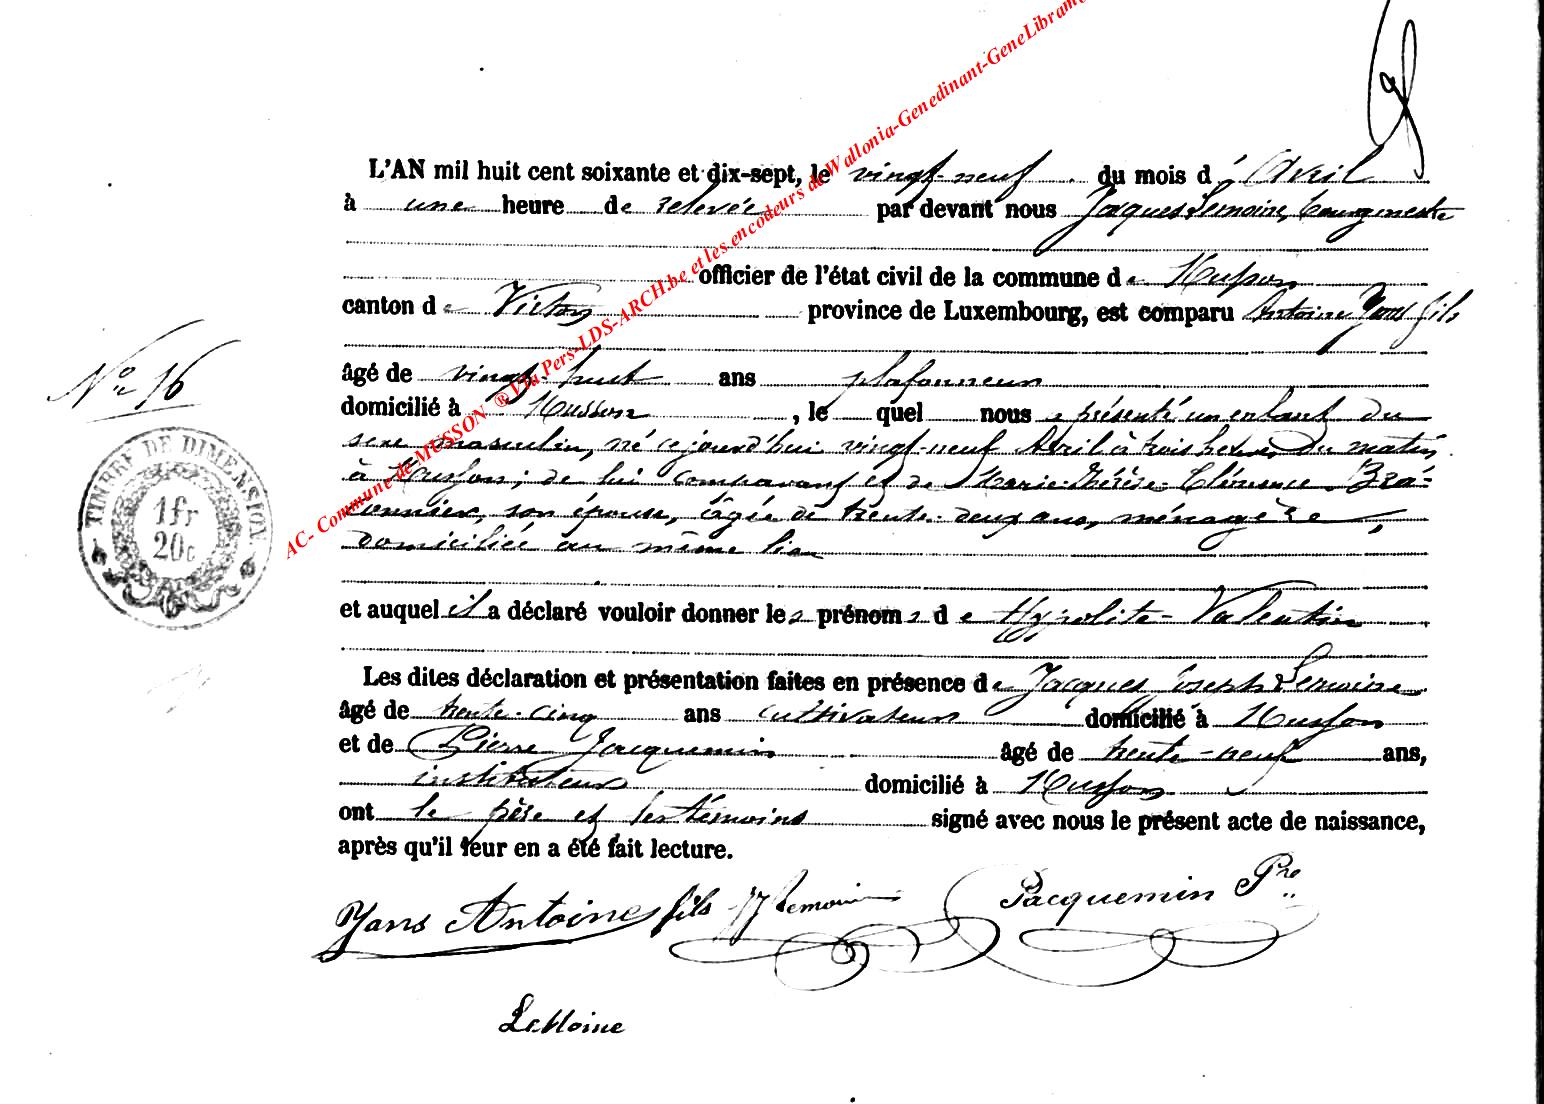 L'AN mil huit cent soixante et dix-sept, le vingt-neuf du mois d'Avril
à une heure de relevée par devant nous Jacques Lemoine, bourgmestre
officier de l'état civil de la commune de Musson
canton de Virton province de Luxembourg, est comparu Antoine Yans fils
âgé de vingt-huit ans plafonneur
N° 16
domicilié à Musson, le quel nous a présenté un enfant du
sexe masculin, né cejourd'hui vingt-neuf Avril à trois heures du matin,
à Musson; de lui comparant et de Marie-Thérèse-Clémence Bra-
connier, son épouse, âgée de trente-deux ans, ménagère,
domiciliée au même lieu
TIMBRE DE DIMENSION
1fr
20c
et auquel il a déclaré vouloir donner les prénoms de Hypolite-Valentin
Les dites déclaration et présentation faites en présence de Jacques Joseph Lemoine
âgé de trente-cinq ans cultivateur domicilié à Musson
et de Pierre Jacquemin âgé de trente-neuf ans,
instituteur domicilié à Musson
ont le père et les témoins signé avec nous le présent acte de naissance,
après qu'il leur en a été fait lecture.
Yans Antoine fils JJ Lemoine Jacquemin Pre
LeMoine
AC- Commune de MUSSON ® Via Pers-LDS-ARCH.be et les encodeurs de Wallonia-Genedinant-GeneLibramo